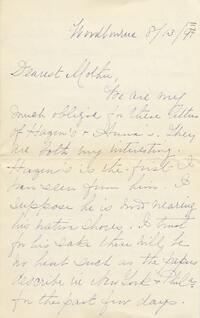 Woodbourne 8/13/
Dearest Mother,
We are very
much obliged for these letters
of Hagen's & Anna's. They
are both very interesting.
Hagen's is the first I
have seen from him. I
suppose he is now nearing
his native shores. I trust
for his sake there will be
no heat such as the papers
describe in New York & Phila
for the past few days.